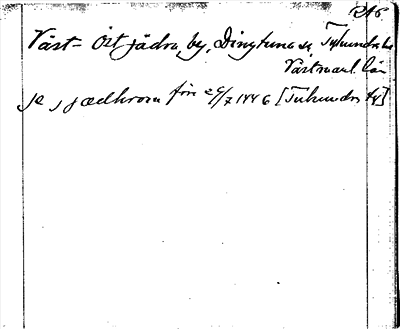 Väst- Östjädra, by, Dingtuna sn Tuhundra hd
Västmanl. län
je, jædhrom före 29/7 1446 [Tuhundra tg]